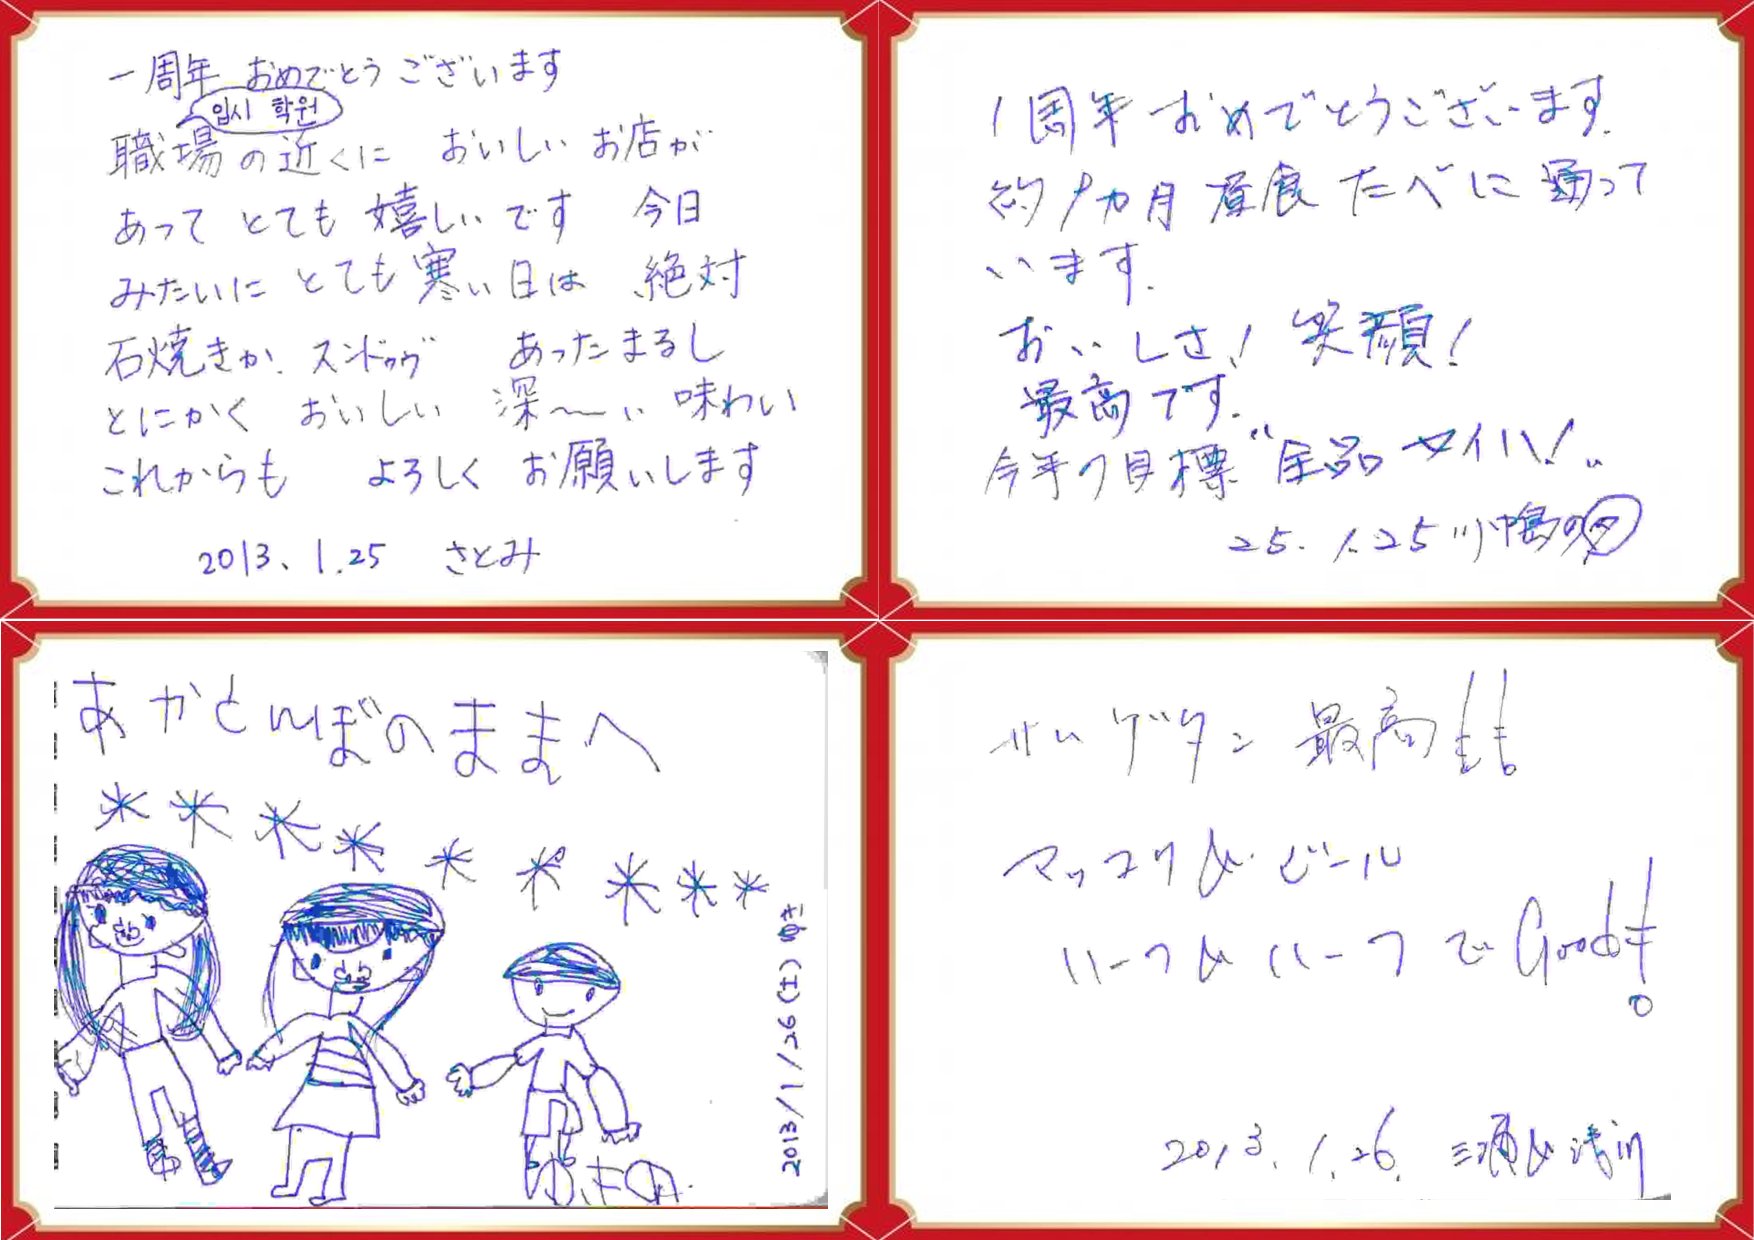 一周年 おめでとうございます
입시 학원
職場の近くに おいしい お店が
あって とても 嬉しいです 今日
みたいに とても 寒い日は 絶対
石焼きか、スンドゥヴ あったまるし
とにかく おいしい 深〜い 味わい
これからも よろしく お願いします
2013. 1.25 さとみ
1周年 おめでとうございます.
約1カ月 昼食 たべに 通って
います.
おいしさ! 笑顔!
最高です.
今年の目標 “全品 セイハ!”
25. 1.25
あかとんぼのままへ
2013/1/26(土) ゆき
サムゲタン 最高!!
マッコリ & ビール
ハーフ & ハーフ で Good!
2013. 1. 26. 三浦 &